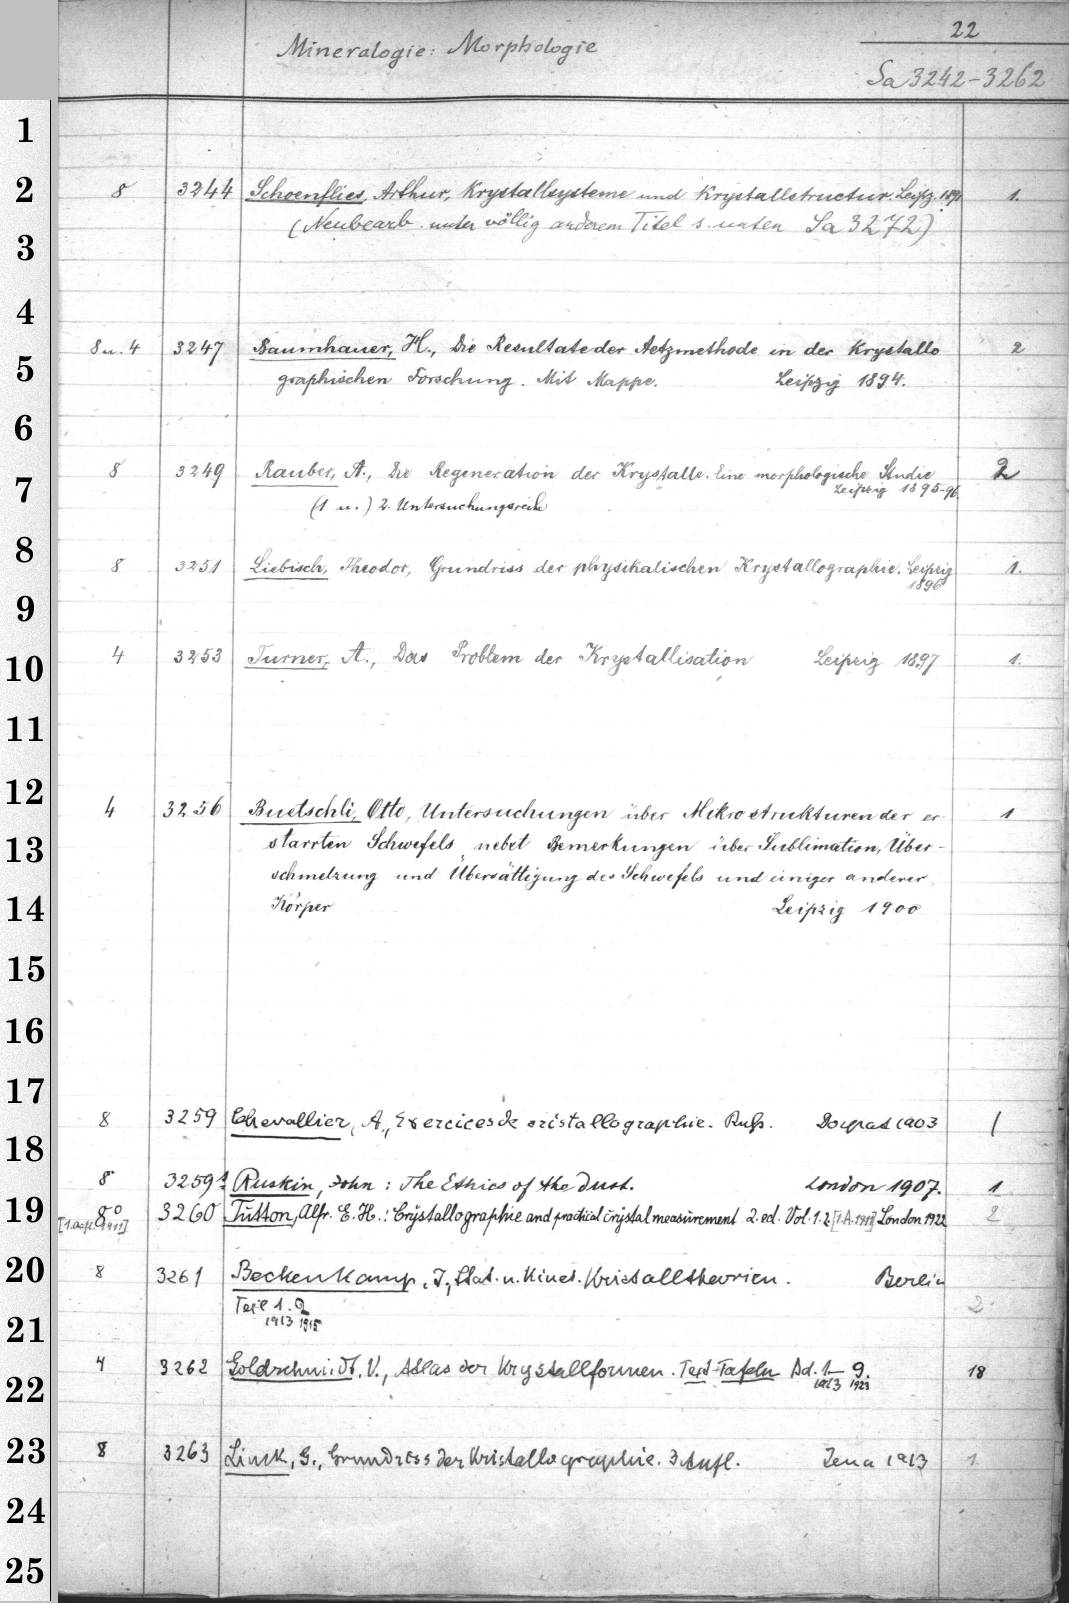 22
Mineralogie: Morphologie
Sa 3242-3262
1
2
3
4
5
6
7
8
9
10
11
12
13
14
15
16
17
18
19
20
21
22
23
24
25
8 3244 Schoenflies, Arthur, Krystallsysteme und Krystallstructur. Leipz. 1891 1.
(Neubearb. unter völlig anderem Titel s. unten Sa 3272)
8 u. 4 3247 Baumhauer, H., Die Resultate der Aetzmethode in der Krystallo 2
graphischen Forschung. Mit Mappe. Leipzig 1894.
8 3249 Rauber, A., Die Regeneration der Krystalle. Eine morphologische Studie 2
Leipzig 1895-96.
(1 u.) 2. Untersuchungsreihe
8 3251 Liebisch, Theodor, Grundriss der physikalischen Krystallographie. Leipzig 1.
1896
4 3253 Turner, A., Das Problem der Krystallisation Leipzig 1897 1.
4 3256 Buetschli, Otto, Untersuchungen über Mikrostrukturen der er- 1
starrten Schwefels nebst Bemerkungen über Sublimation, Über-
schmelzung und Übersättigung des Schwefels und einiger anderer
Körper Leipzig 1900
8 3259 Chevallier, A., Exercices de cristallographie. Russ. Dorpat 1903 1
8 3259a Ruskin, John: The Ethics of the Dust. London 1907. 1
8° 3260 Tutton, Alfr. E. H.: Crystallographie and practical crystal measurement 2. ed. Vol. 1.2 [1.A.1911] London 1922 2
[1. Aufl. 1911]
8 3261 Beckenkamp, J., Stat. u. Kinet. Kristalltheorien. Berlin
Teil 1. 2 2
1913 1915
4 3262 Goldschmidt, V., Atlas der Krystallformen. Text-Tafeln Bd. 1-9. 18
1913 1923
8 3263 Linck, G., Grundriss der Kristallographie. 3 Aufl. Jena 1913 1